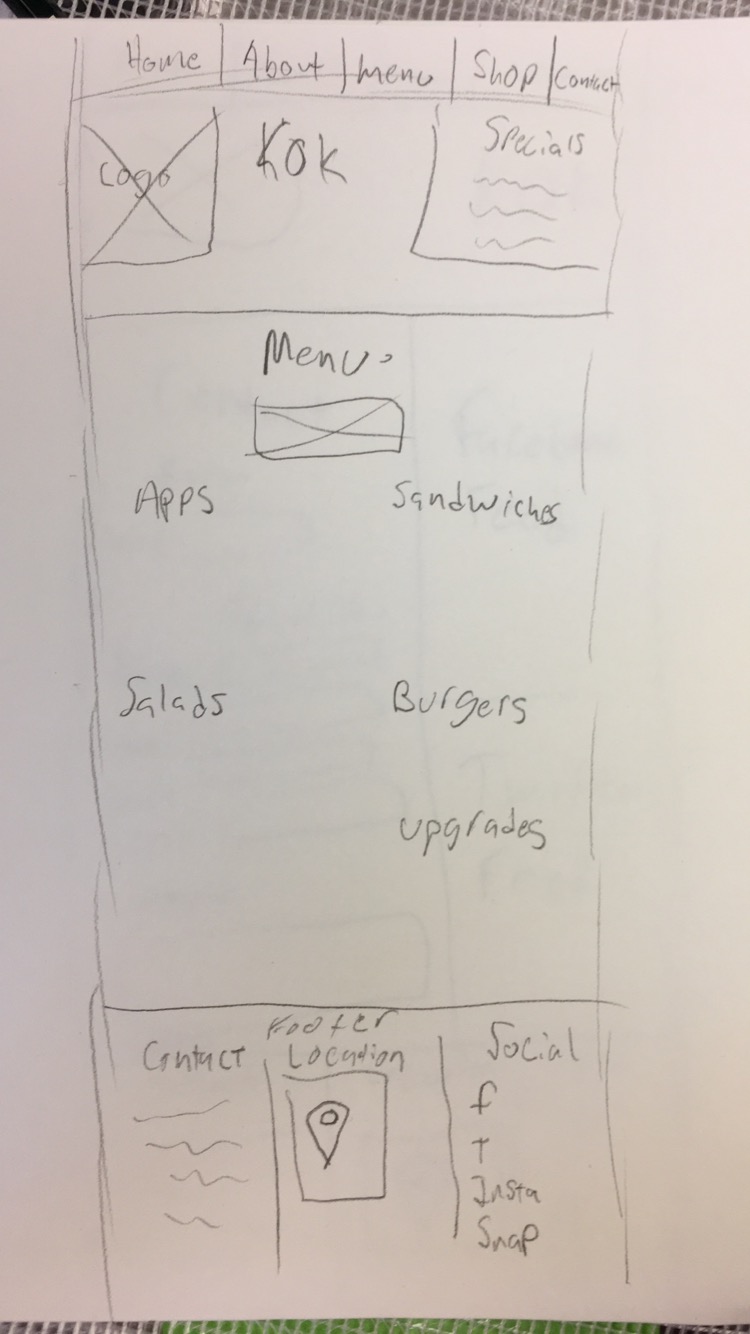 Home About menu Shop Contact
Logo
KOK
Specials
Menu
Apps
Sandwiches
Salads
Burgers
upgrades
Footer
Contact
Location
Social
f
T
Insta
Snap